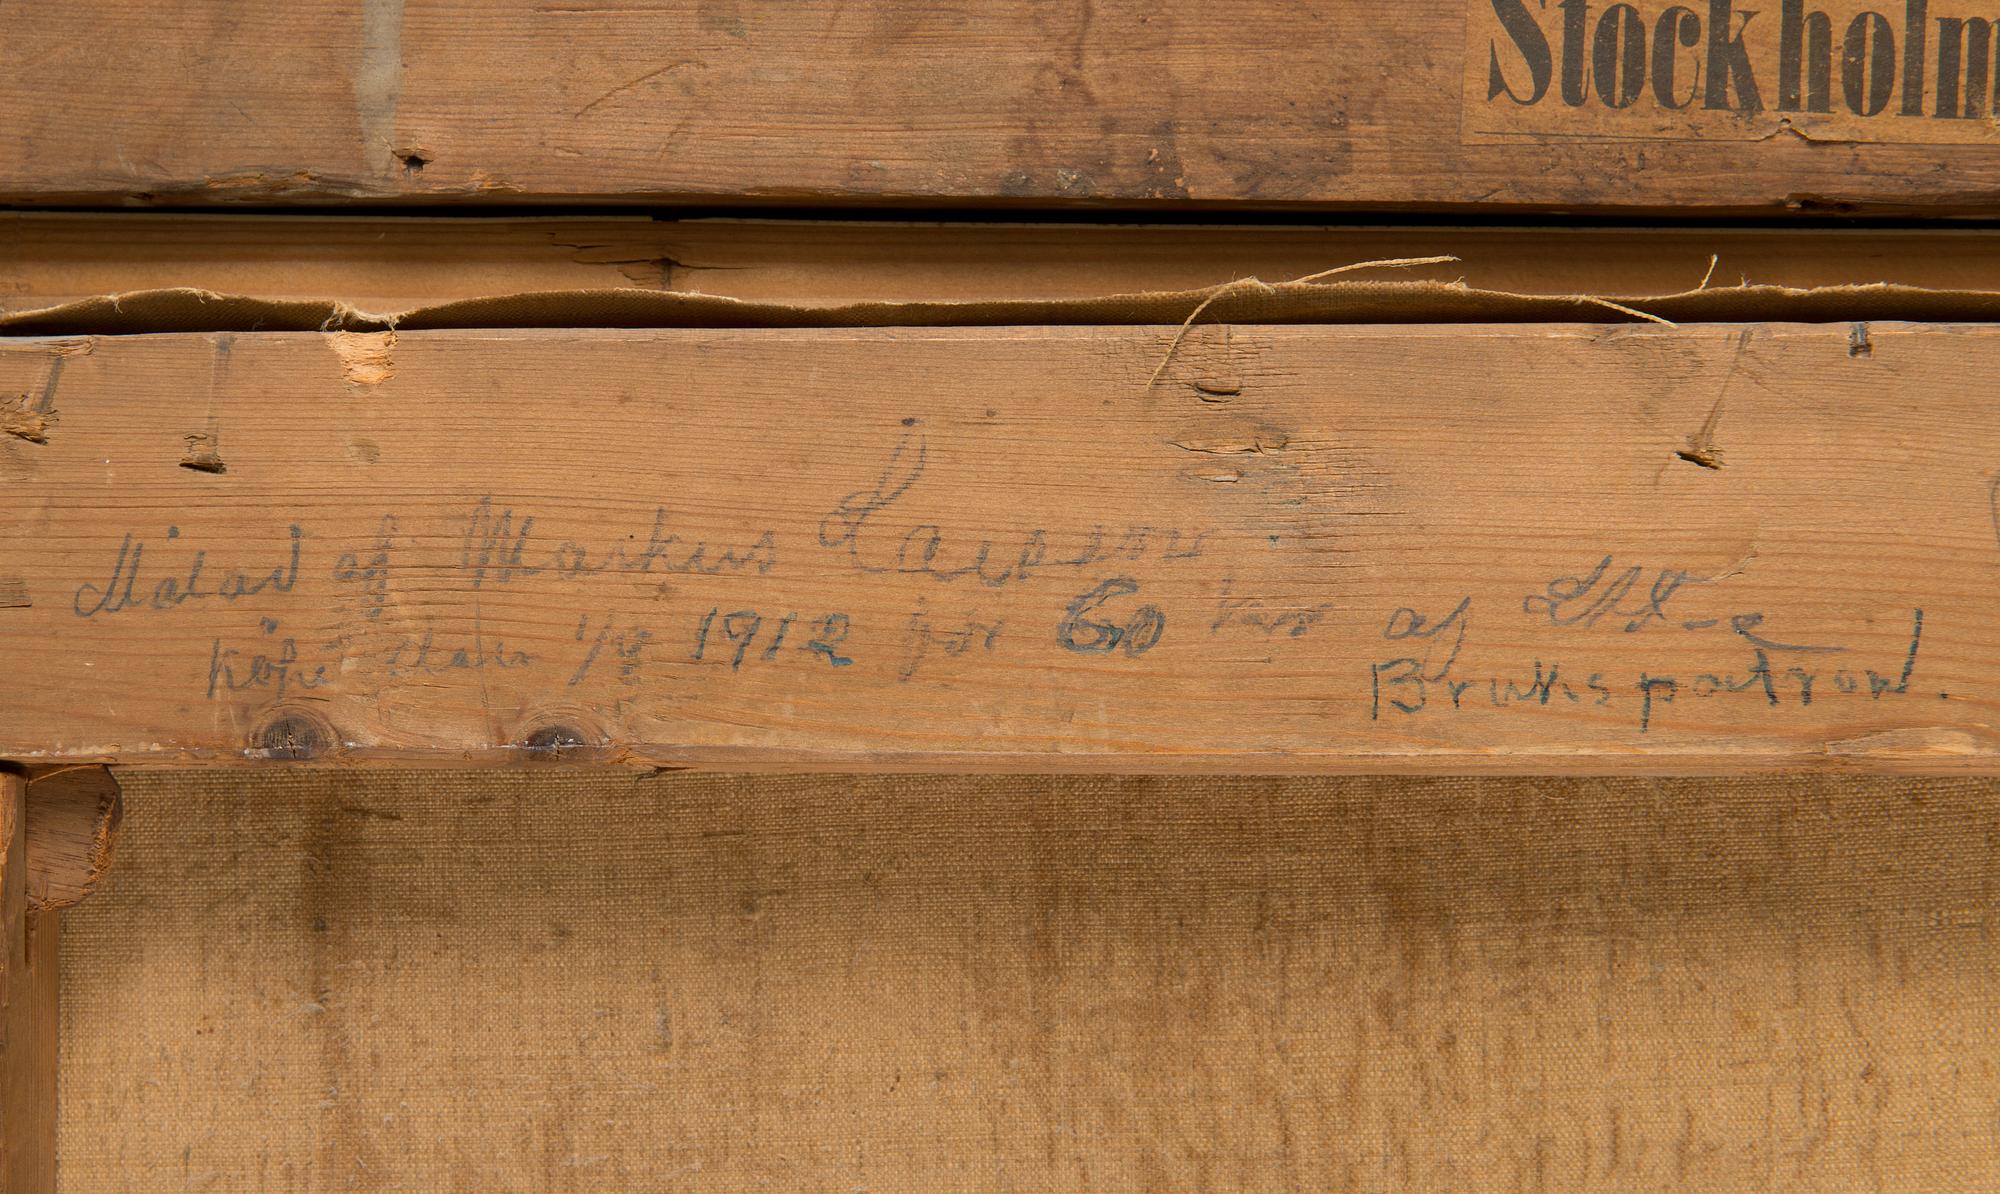 Stockholm
Målad af Markus Larsson
köpt den 1/9 1912 för 60 kr af
Brukspatron.